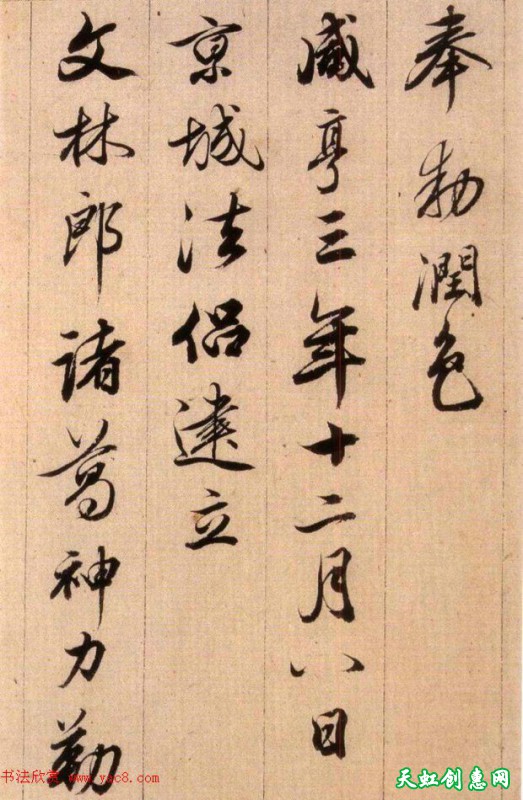 奉勅潤色
咸亨三年十二月八日
京城法侶建立
文林郎諸葛神力勒
书法欣赏 www.yac8.com
天虹创惠网